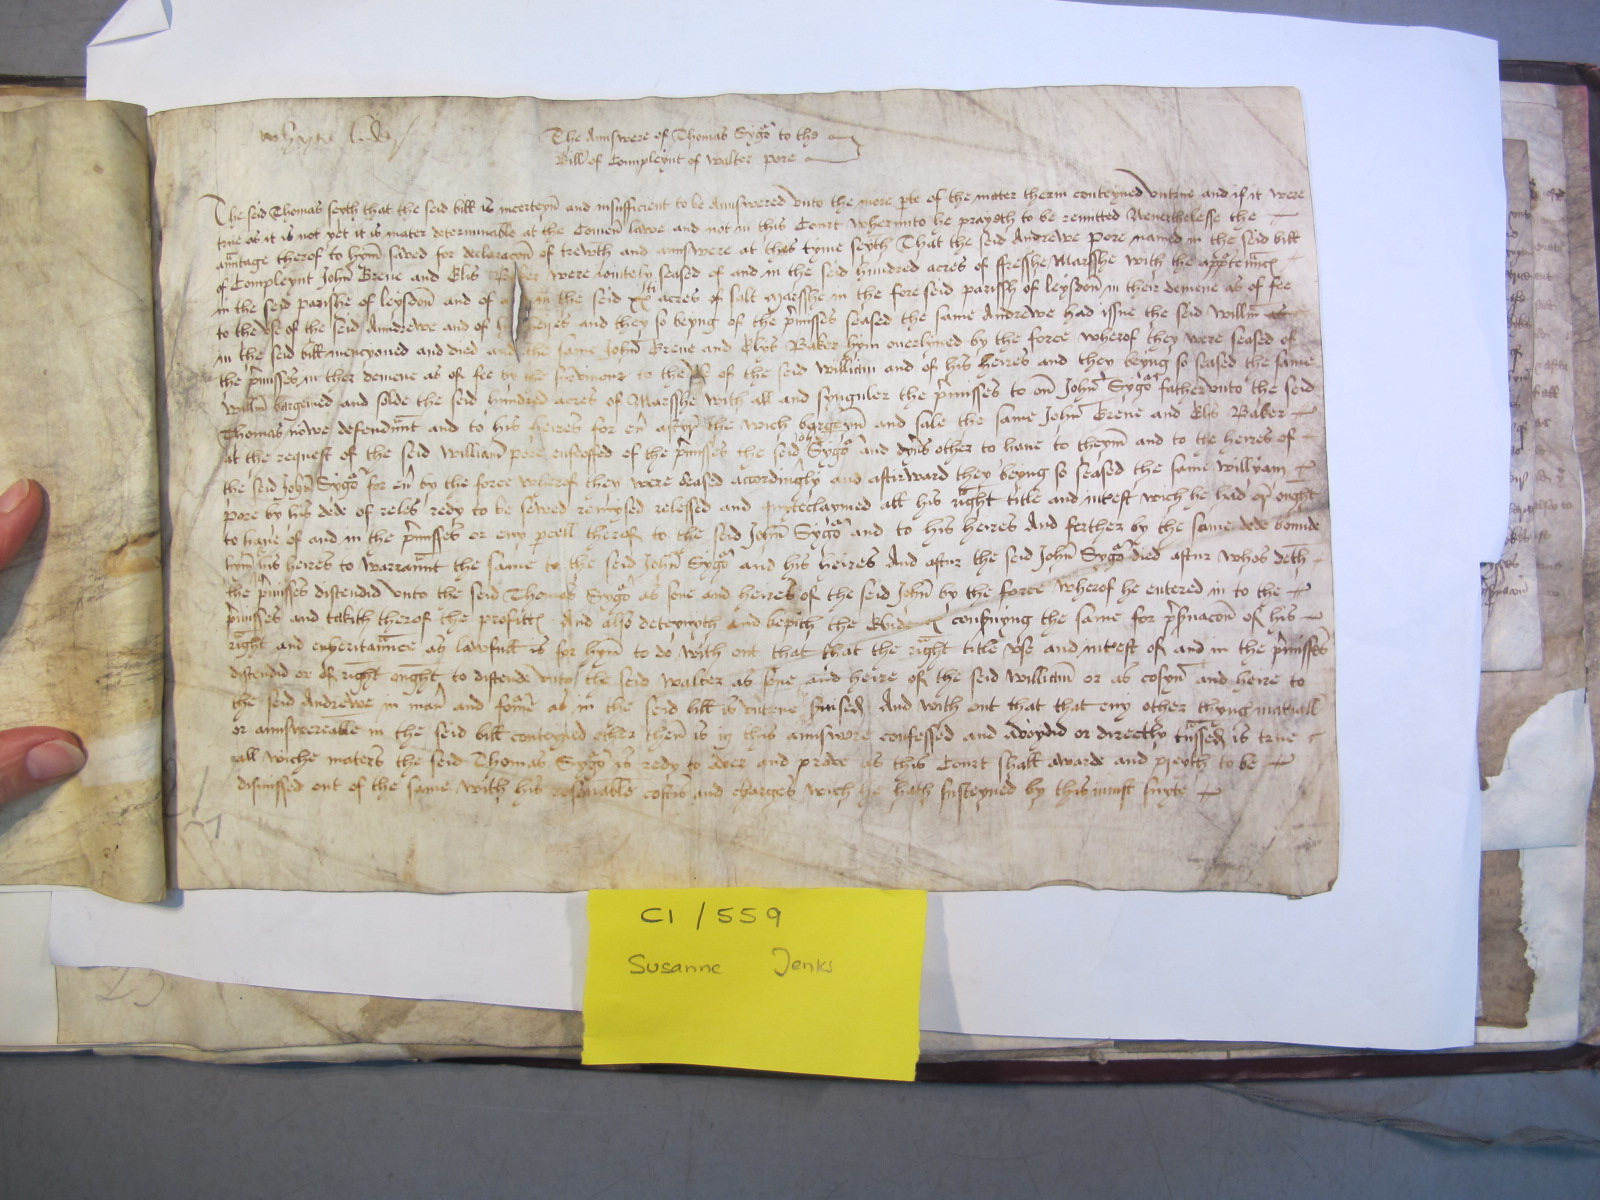 The Aunswere of Thomas Sygo to the
Bill of Compleynt of Walter pore
The seid Thomas seyth that the seid bill is incerteyn and insufficient to be Aunswered vnto the more pte of the mater therin conteyned vntrue and if it were
true as it is not yet it is mater determinable at the Comen lawe and not in this Court wherunto he prayeth to be remitted Neuerthelesse the
auntage therof to hym saued for declaracon of trewth and aunswere at this tyme seyth That the seid Andrewe Pore named in the seid bill
of Compleynt John Grene and Elis Baker were iointely seased of and in the seid hundred acres of ffresshe Marsshe with the apptennc
in the seid parishe of leysdon and of and in the seid xxti acres of salt Marsshe in the foreseid parissh of leysdon in their demene as of fee
to the vse of the seid Anndrewe and of heires and they so beyng of the pmisses seased the same Andrewe had issue the seid Willm
in the seid bill mencyoned and died and the same John Grene and Elys Baker hym ouerlyued by the force wherof they were seased of
the pmisses in ther demene as of fee by the suruiuour to the vse of the seid William and of his heires and they beyng so seased the same
Willm bargeined and solde the seid hundred acres of Marsshe with all and synguler the pmisses to on John Sygo father vnto the seid
Thomas nowe defendaunt and to his heires for eu aftyr the wich bargeyn and sale the same John Grene and Elis Baker
at the request of the seid William pore enfeoffed of the pmisses the seid John Sygo and dyus other to haue to theym and to the heires of
the seid John Sygo for eu by the force wherof they were seased accordingly and aftirward they beyng so seased the same Willyam
pore by his dede of reles redy to be shewed remysed relessed and quyteclaymed all his right title and intrest wich he had or ought
to haue of and in the pmisses or eny pcell therof to the seid John Sygo and to his heires And ferther by the same dede bounde
hym his heires to Warraunt the same to the seid John Sygo and his heires And aftur the seid John Sygo died aftur whos deth
the pmisses distendid vnto the seid Thomas Sygo as sone and heires of the seid John by the force wherof he entered in to the
pmisses and takith therof the profittes And also deteynyth and kepith the Euidences consnyng the same for psuacon of his
right and enheritaunce as lawfull is for hym to do with out that that the right title vse and intrest of and in the pmisses
distendid or of right ought to distende vnto the seid Walter as sone and heire of the seid William or as cosyn and heire to
the seid Andrewe in man and forme as in the seid bill is vntrue surmised And with out that that eny other thyng matiall
or aunswereable in the seid bill conteyned other then is in this aunswere confessed and avoydid or directly trauersed is true
all wiche maters the seid Thomas Sygo is redy to aver and prove as this Court shall awarde and preyth to be
dismissed out of the same with his resonable costis and charges wich he hath susteyned by this iniust suyte
C1 / 559
Susanne Jenks